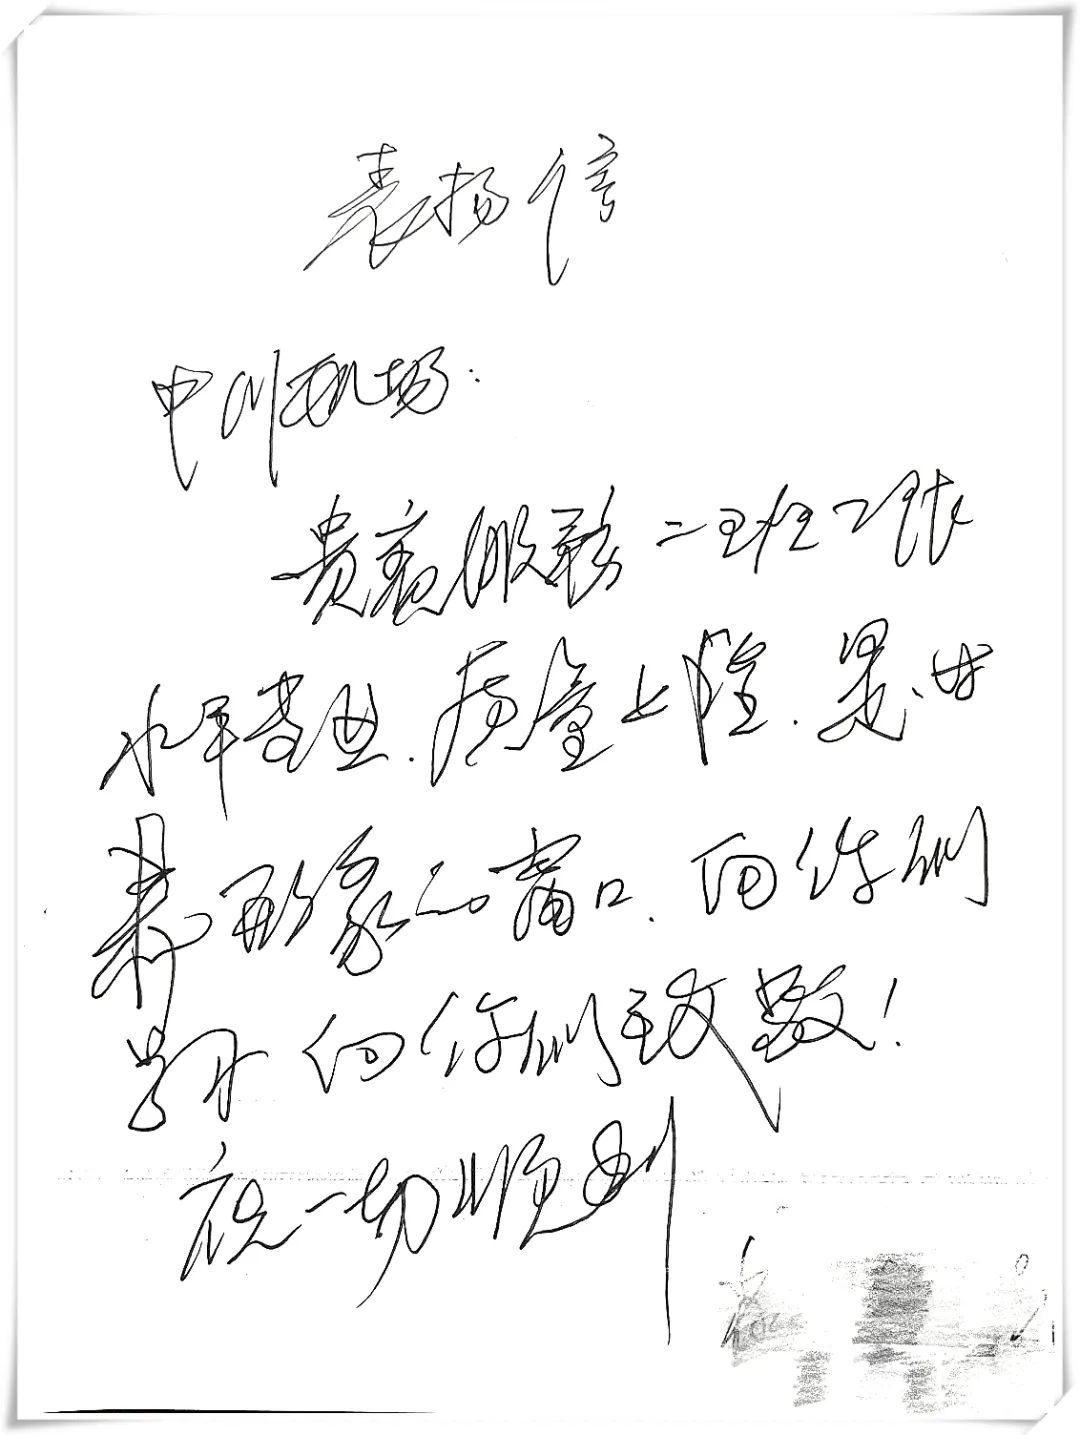 表扬信
中川机场:
贵宾服务二班工张
水平专业.质量上阶.是
表形象的窗口.向你们
学习 向你们致敬!
祝一切顺利